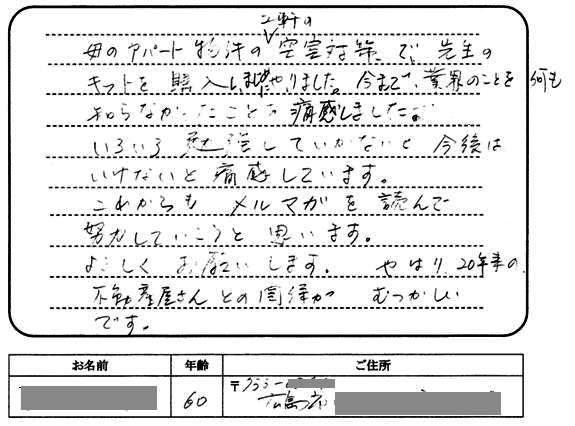 2軒の
母のアパート物件の空室対策で、先生の
キットを購入しまじめにやりました。今まで、業界のことを何も
知らなかったことを痛感しました。
いろいろ勉強していかないと今後は
いけないと痛感しています。
これからもメルマガを読んで
努力していこうと思います。
よろしくお願いします。 やはり、20年来の
不動産屋さんとの関係が むつかしい
です。
お名前 年齢 ご住所
〒733-
60 広島市